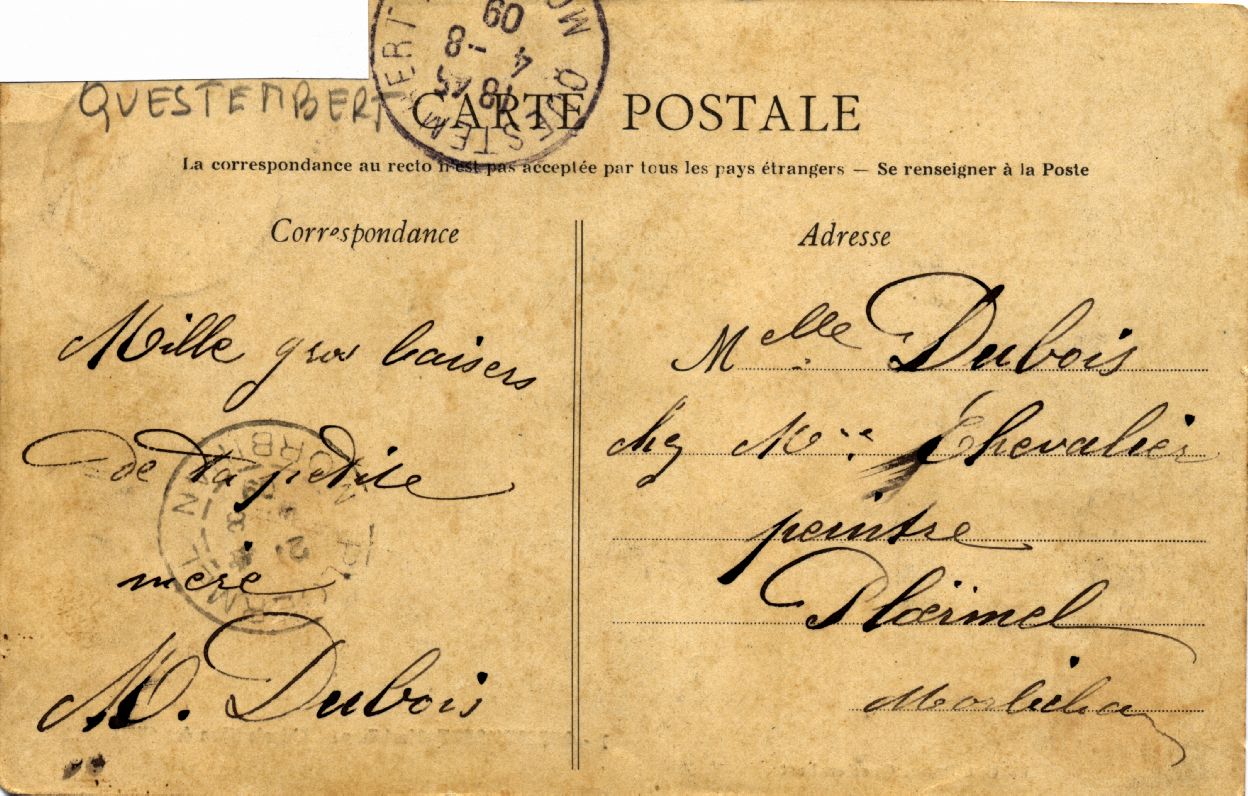 QUESTEMBERT
QUESTEMBERT MO
18 45
4 -8
09
CARTE POSTALE
La correspondance au recto n'est pas acceptée par tous les pays étrangers — Se renseigner à la Poste
Correspondance
Mille gros baisers
de ta petite
mere
M. Dubois
PLOERMEL MORBIHAN
Adresse
Mlle Dubois
chez Mme Chevalier
peintre
Ploërmel
Morbihan